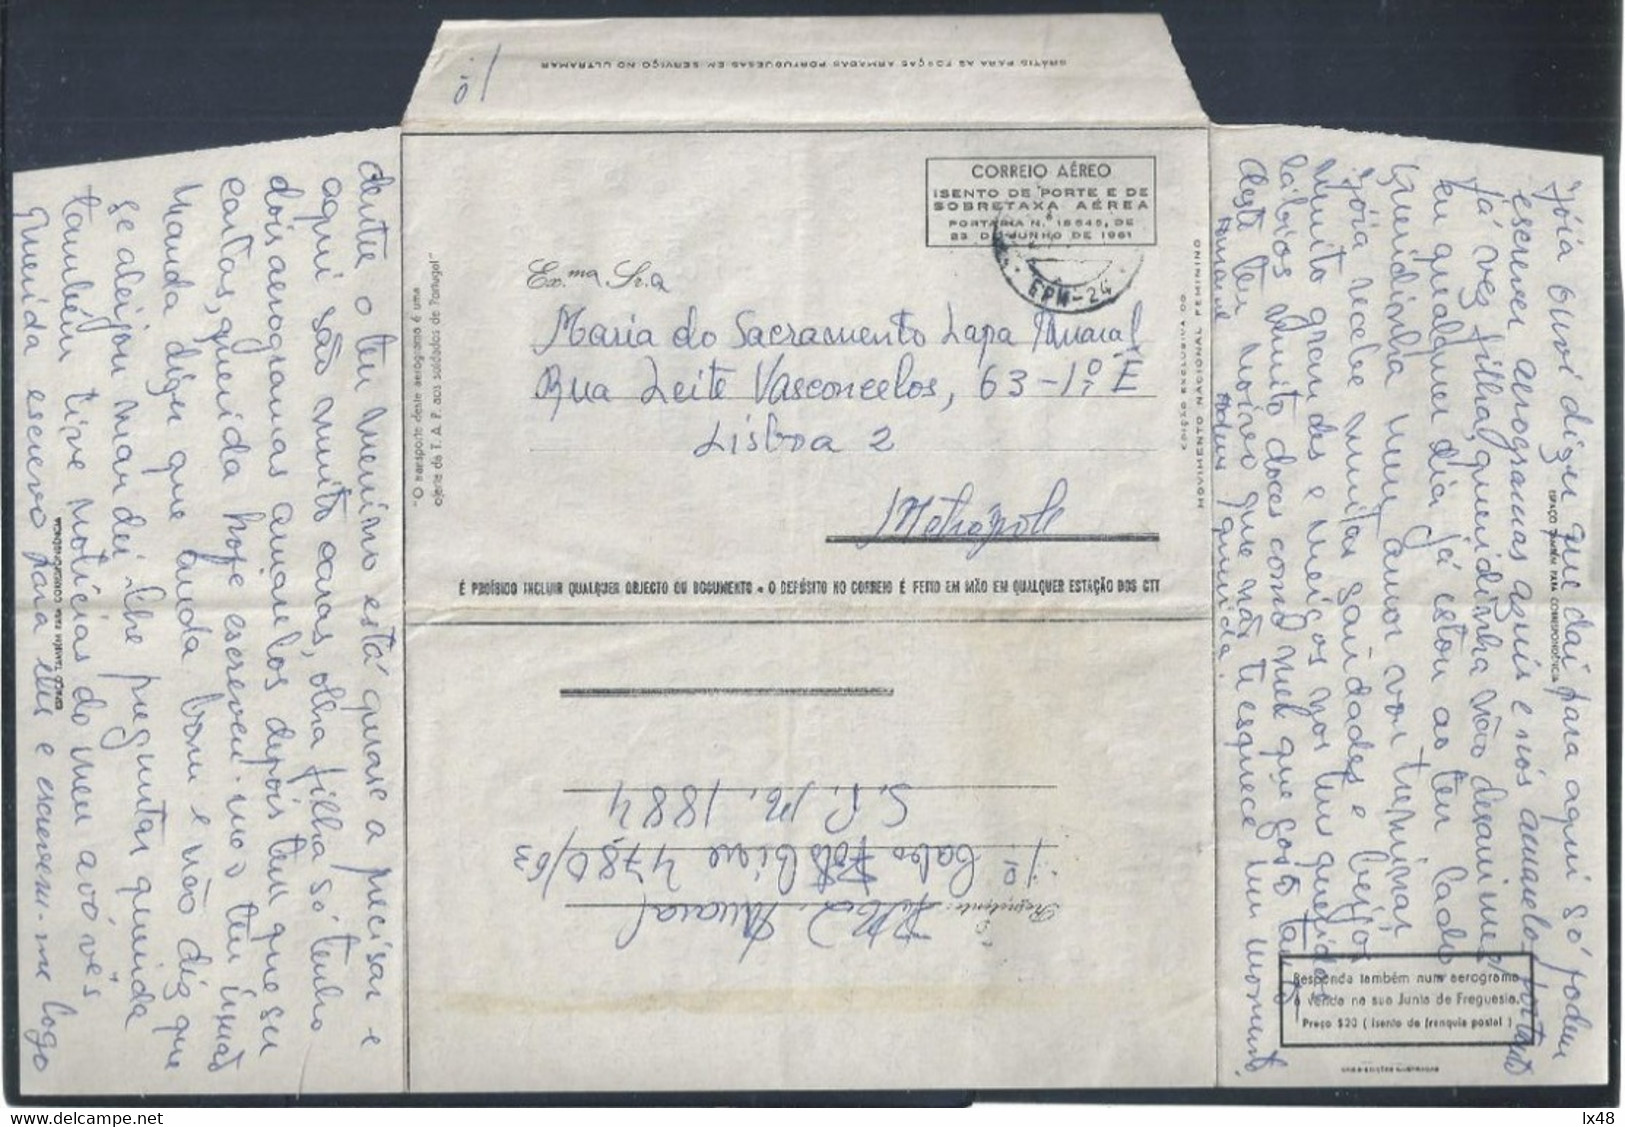 GRÁTIS PARA AS FORÇAS ARMADAS PORTUGUESAS EM SERVIÇO NO ULTRAMAR
CORREIO AÉREO
ISENTO DE PORTE E DE
SOBRETAXA AÉREA
PORTARIA N.º 18545, DE
23 DE JUNHO DE 1961
SPM-24
Ex.ma Sr.a
Maria do Sacramento Lapa Amaral
Rua Leite Vasconcelos, 63-1º E
Lisboa 2
Metrópole
"O transporte deste aerograma é uma
oferta da T. A. P. aos soldados de Portugal"
EDIÇÃO EXCLUSIVA DO
MOVIMENTO NACIONAL FEMININO
É PROÍBIDO INCLUIR QUALQUER OBJECTO OU DOCUMENTO - O DEPÓSITO NO CORREIO É FEITO EM MÃO EM QUALQUER ESTAÇÃO DOS CTT
Remetente:
Amaral
1º Cabo 4780/63
S. P. M. 1884
ESPAÇO TAMBÉM PARA CORRESPONDÊNCIA
dentre o teu menino está quase a precisar e
aqui são muito caras, olha filha só tenho
dois aerogramas amarelos depois tem que ser
cartas, querida hoje escreveu-me o teu irmão
manda dizer que anda bom e não diz que
se aleijou mas dei-lhe perguntar querida
também tive notícias do meu avô vês
querida escrevo para um e escrevem-me logo
Jóia ouvi dizer que daí para aqui só podem
escrever aerogramas azuis e nós amarelo, portanto
já vês filha, queridinha não desanimes
eu qualquer dia já estou ao teu lado
Queridinha meu amor vou terminar
Jóia recebe muitas saudades e beijos
muito grandes e meigos nos teus queridos
lábios muito doces como mel que gosto tanto
deste teu noivo que não te esquece um momento
Amavel
Adeus querida
ESPAÇO TAMBÉM PARA CORRESPONDÊNCIA
Responda também num aerograma
à venda na sua Junta de Freguesia.
Preço $20 (isento de franquia postal)
lx48
www.delcampe.net